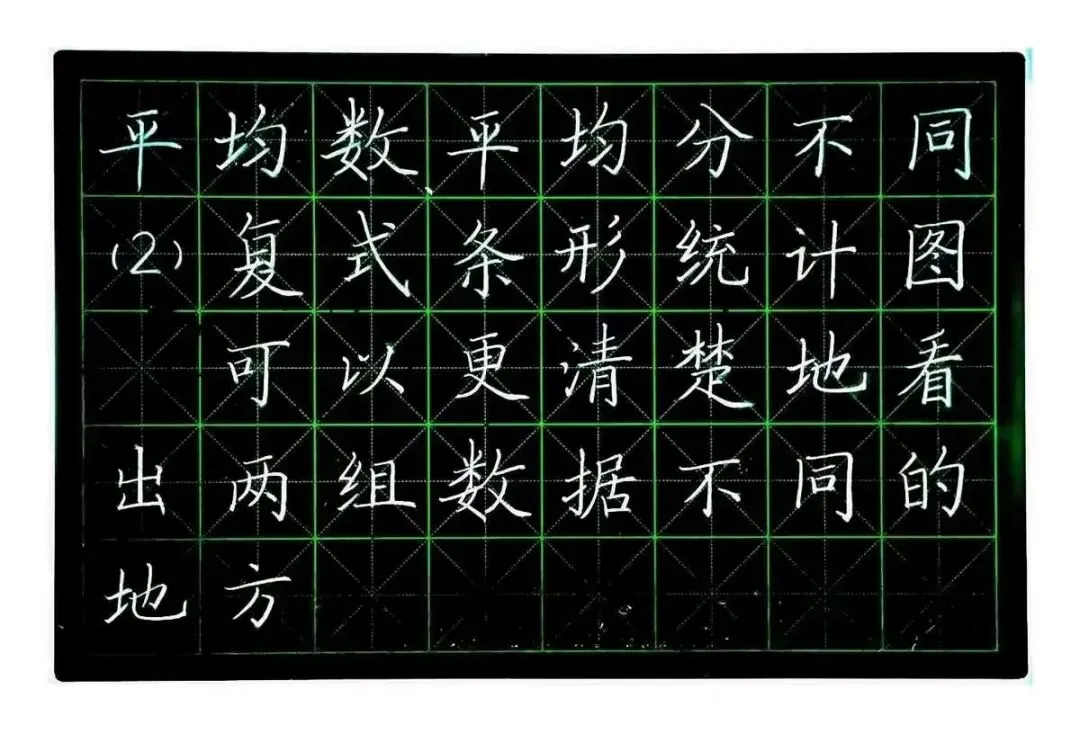 平均数、平均分不同
(2)复式条形统计图
可以更清楚地看
出两组数据不同的
地方